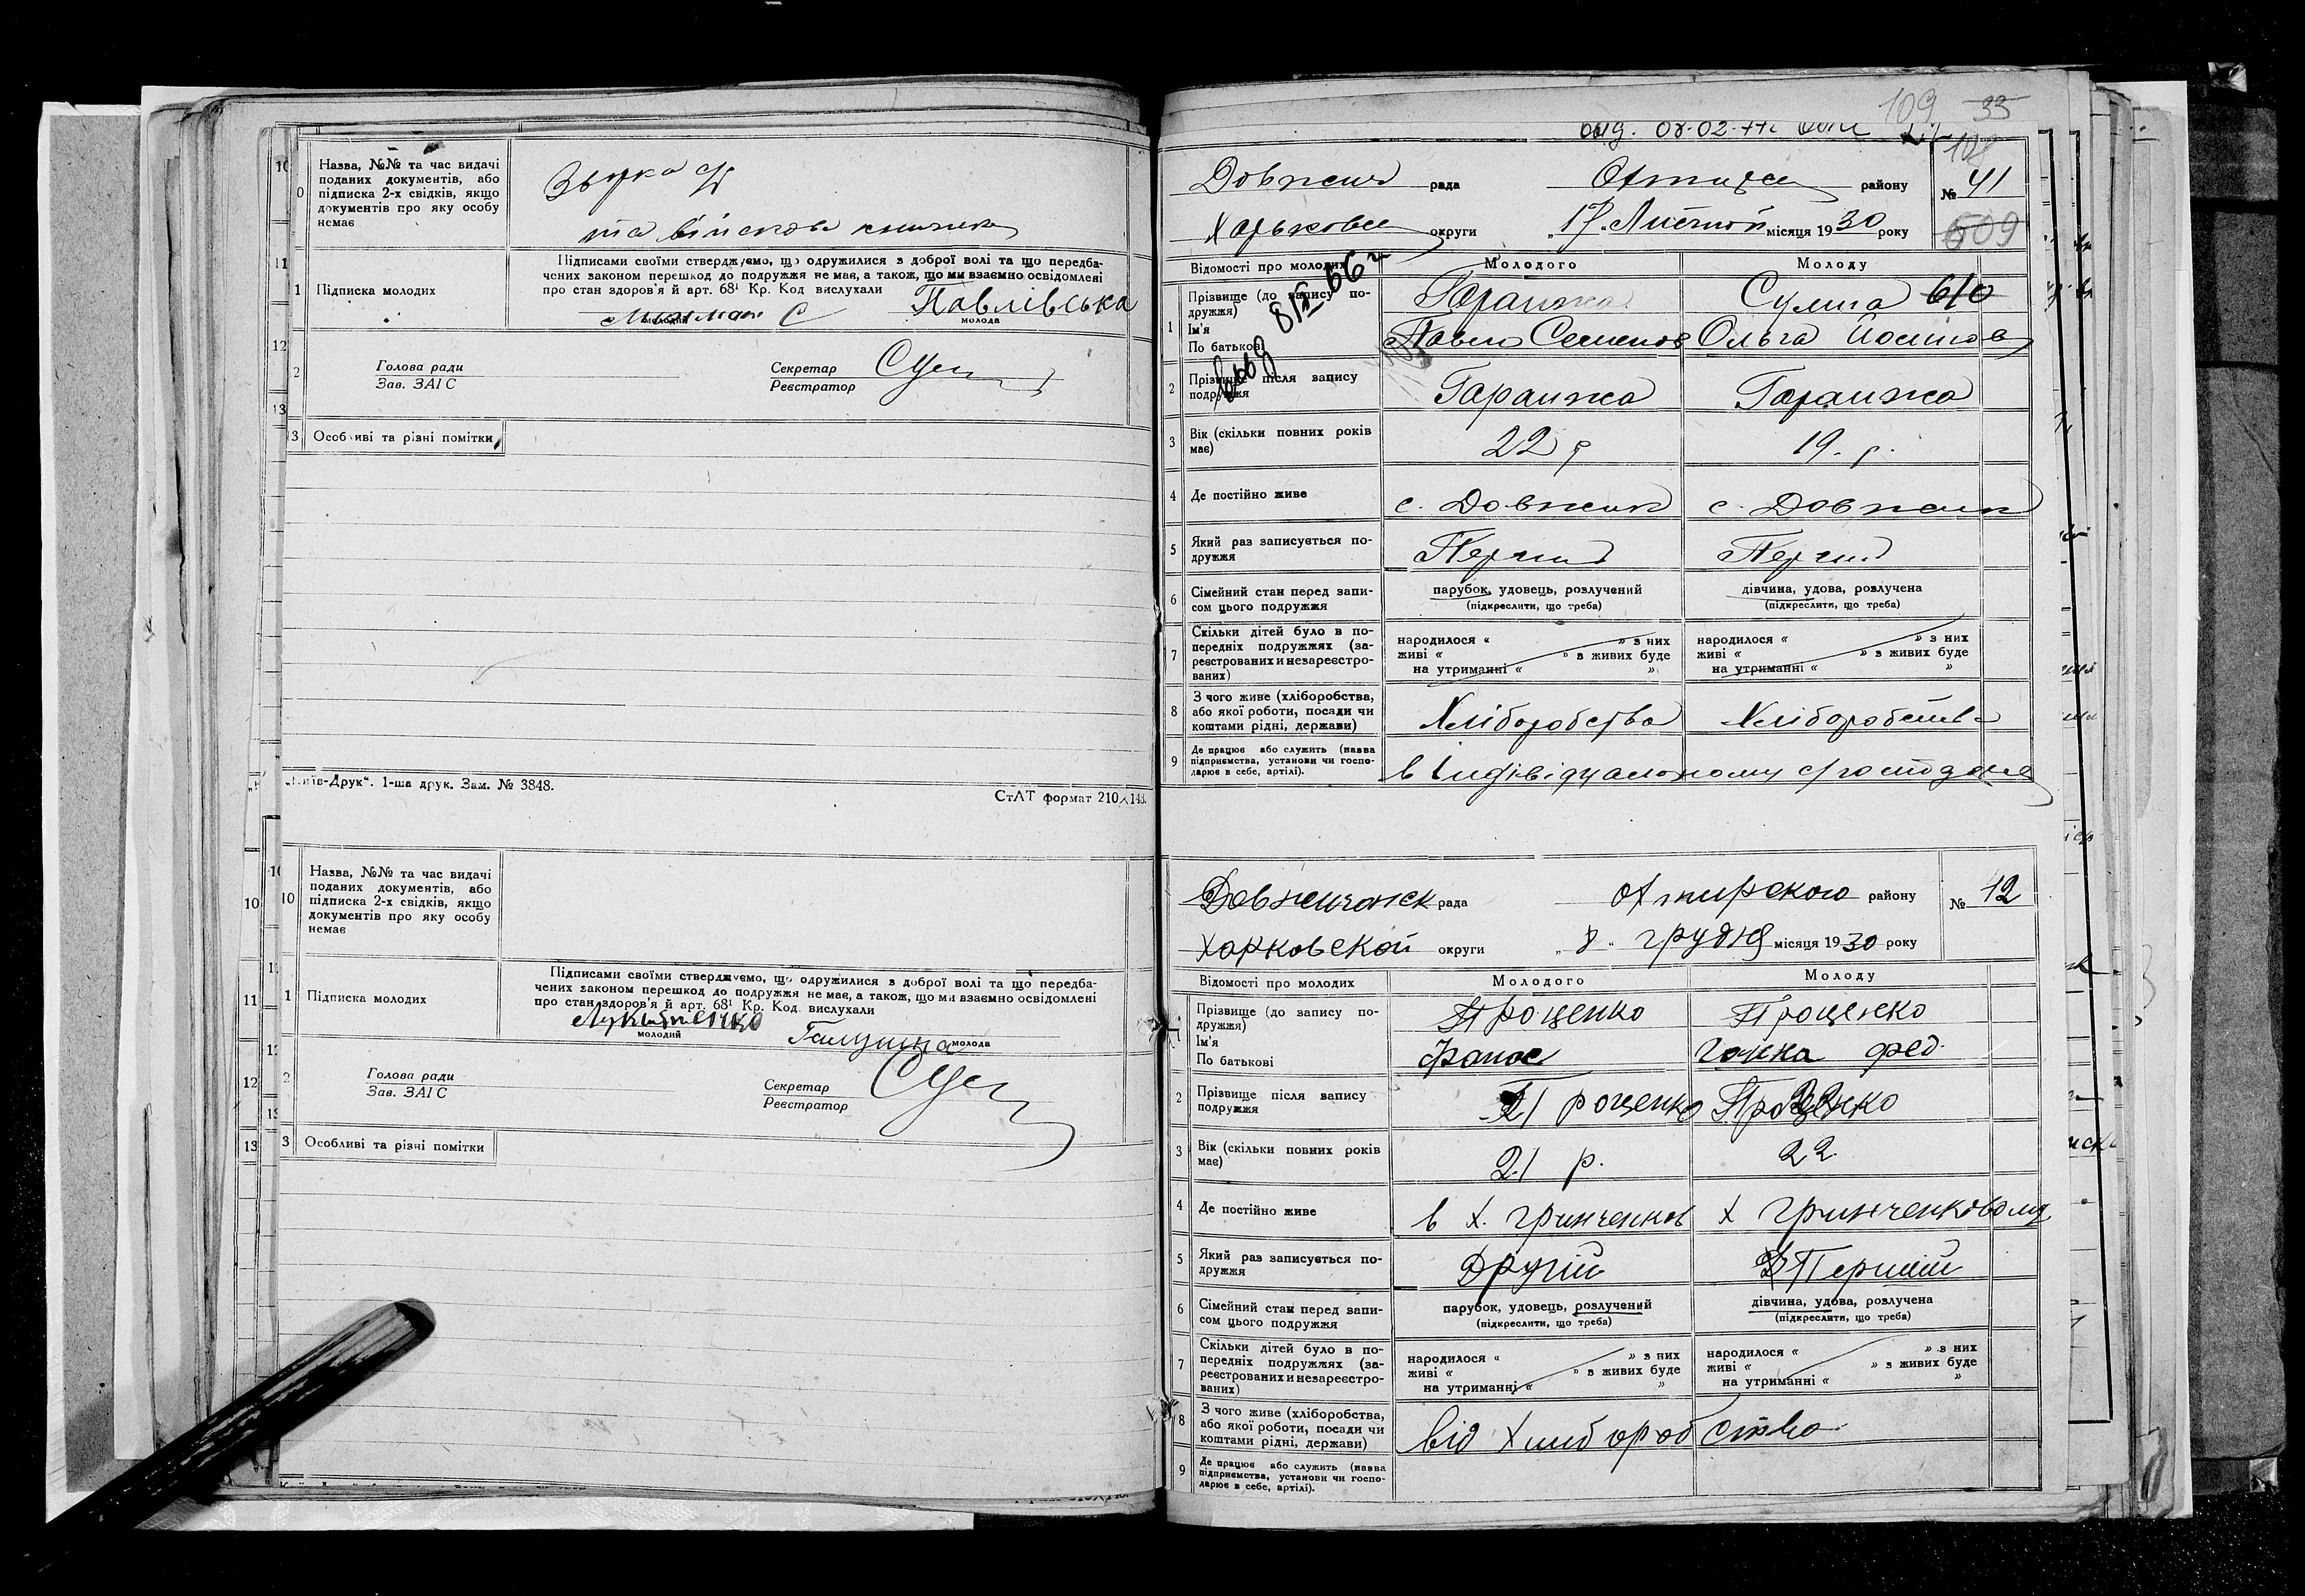 10
0
Назва, №№ та час видачі
поданих документів, або
підписка 2-х свідків, якщо
документів про яку особу
немає
та військова книжка
11
1
Підписка молодих
Підписами своїми стверджуємо, що одружилися з доброї волі та що передба-
чених законом перешкод до подружжя не має, а також, що ми взаємно освідомлені
про стан здоров'я й арт. 68¹ Кр. Код вислухали
Павлівська
молодий
молода
12
2
Голова ради
Зав. ЗАГС
Секретар
Реєстратор
13
3
Особливі та різні помітки
"Київ-Друк". 1-ша друк. Зам. № 3848.
СтАТ формат 210×148.
10
10
Назва, №№ та час видачі
поданих документів, або
підписка 2-х свідків, якщо
документів про яку особу
немає
11
1
Підписка молодих
Підписами своїми стверджуємо, що одружилися з доброї волі та що передба-
чених законом перешкод до подружжя не має, а також, що ми взаємно освідомлені
про стан здоров'я й арт. 68¹ Кр. Код. вислухали
молодий
молода
12
2
Голова ради
Зав. ЗАГС
Секретар
Реєстратор
13
3
Особливі та різні помітки
109 33
рада району № 41
округи "17" місяця 1930 року
609
Відомості про молодих Молодого Молоду
1
Прізвище (до запису по-
дружжя)
Ім'я
По батькові
Гаранжа Сулима 610
Павло Семенов Ольга Йосипов
2
Прізвище після запису
подружжя
Гаранжа Гаранжа
3
Вік (скільки повних років
має)
22 р 19. р.
4
Де постійно живе
с. Довжик с. Довжик
5
Який раз записується по-
дружжя
Перший Перший
6
Сімейний стан перед запи-
сом цього подружжя
парубок, удовець, розлучений дівчина, удова, розлучена
(підкреслити, що треба) (підкреслити, що треба)
7
Скільки дітей було в по-
передніх подружжях (за-
реєстрованих и незареєстро-
ваних)
народилося « » з них народилося « » з них
живі « » з живих буде живі « » з живих буде
на утриманні « » на утриманні « »
8
З чого живе (хліборобства,
або якої роботи, посади чи
коштами рідні, держави)
Хліборобства Хліборобства
9
Де працює або служить (назва
підприємства, установи чи госпо-
дарює в себе, артілі).
в індівідуальному
рада Охтирского району № 12
Харковской округи "8" грудня місяця 1930 року
Відомості про молодих Молодого Молоду
1
Прізвище (до запису по-
дружжя)
Ім'я
По батькові
Проценко Проценко
Фед.
2
Прізвище після запису
подружжя
Проценко Проценко
3
Вік (скільки повних років
має)
21 р. 22
4
Де постійно живе
в х. Гринченков х Гринченковому
5
Який раз записується по-
дружжя
Другий Перший
6
Сімейний стан перед запи-
сом цього подружжя
парубок, удовець, розлучений дівчина, удова, розлучена
(підкреслити, що треба) (підкреслити, що треба)
7
Скільки дітей було в по-
передніх подружжях (за-
реєстрованих и незареєстро-
ваних)
народилося « » з них народилося « » з них
живі « » з живих буде живі « » з живих буде
на утриманні « » на утриманні « »
8
З чого живе (хліборобства,
або якої роботи, посади чи
коштами рідні, держави)
від Хлиборобства
9
Де працює або служить (назва
підприємства, установи чи госпо-
дарює в себе, артілі).